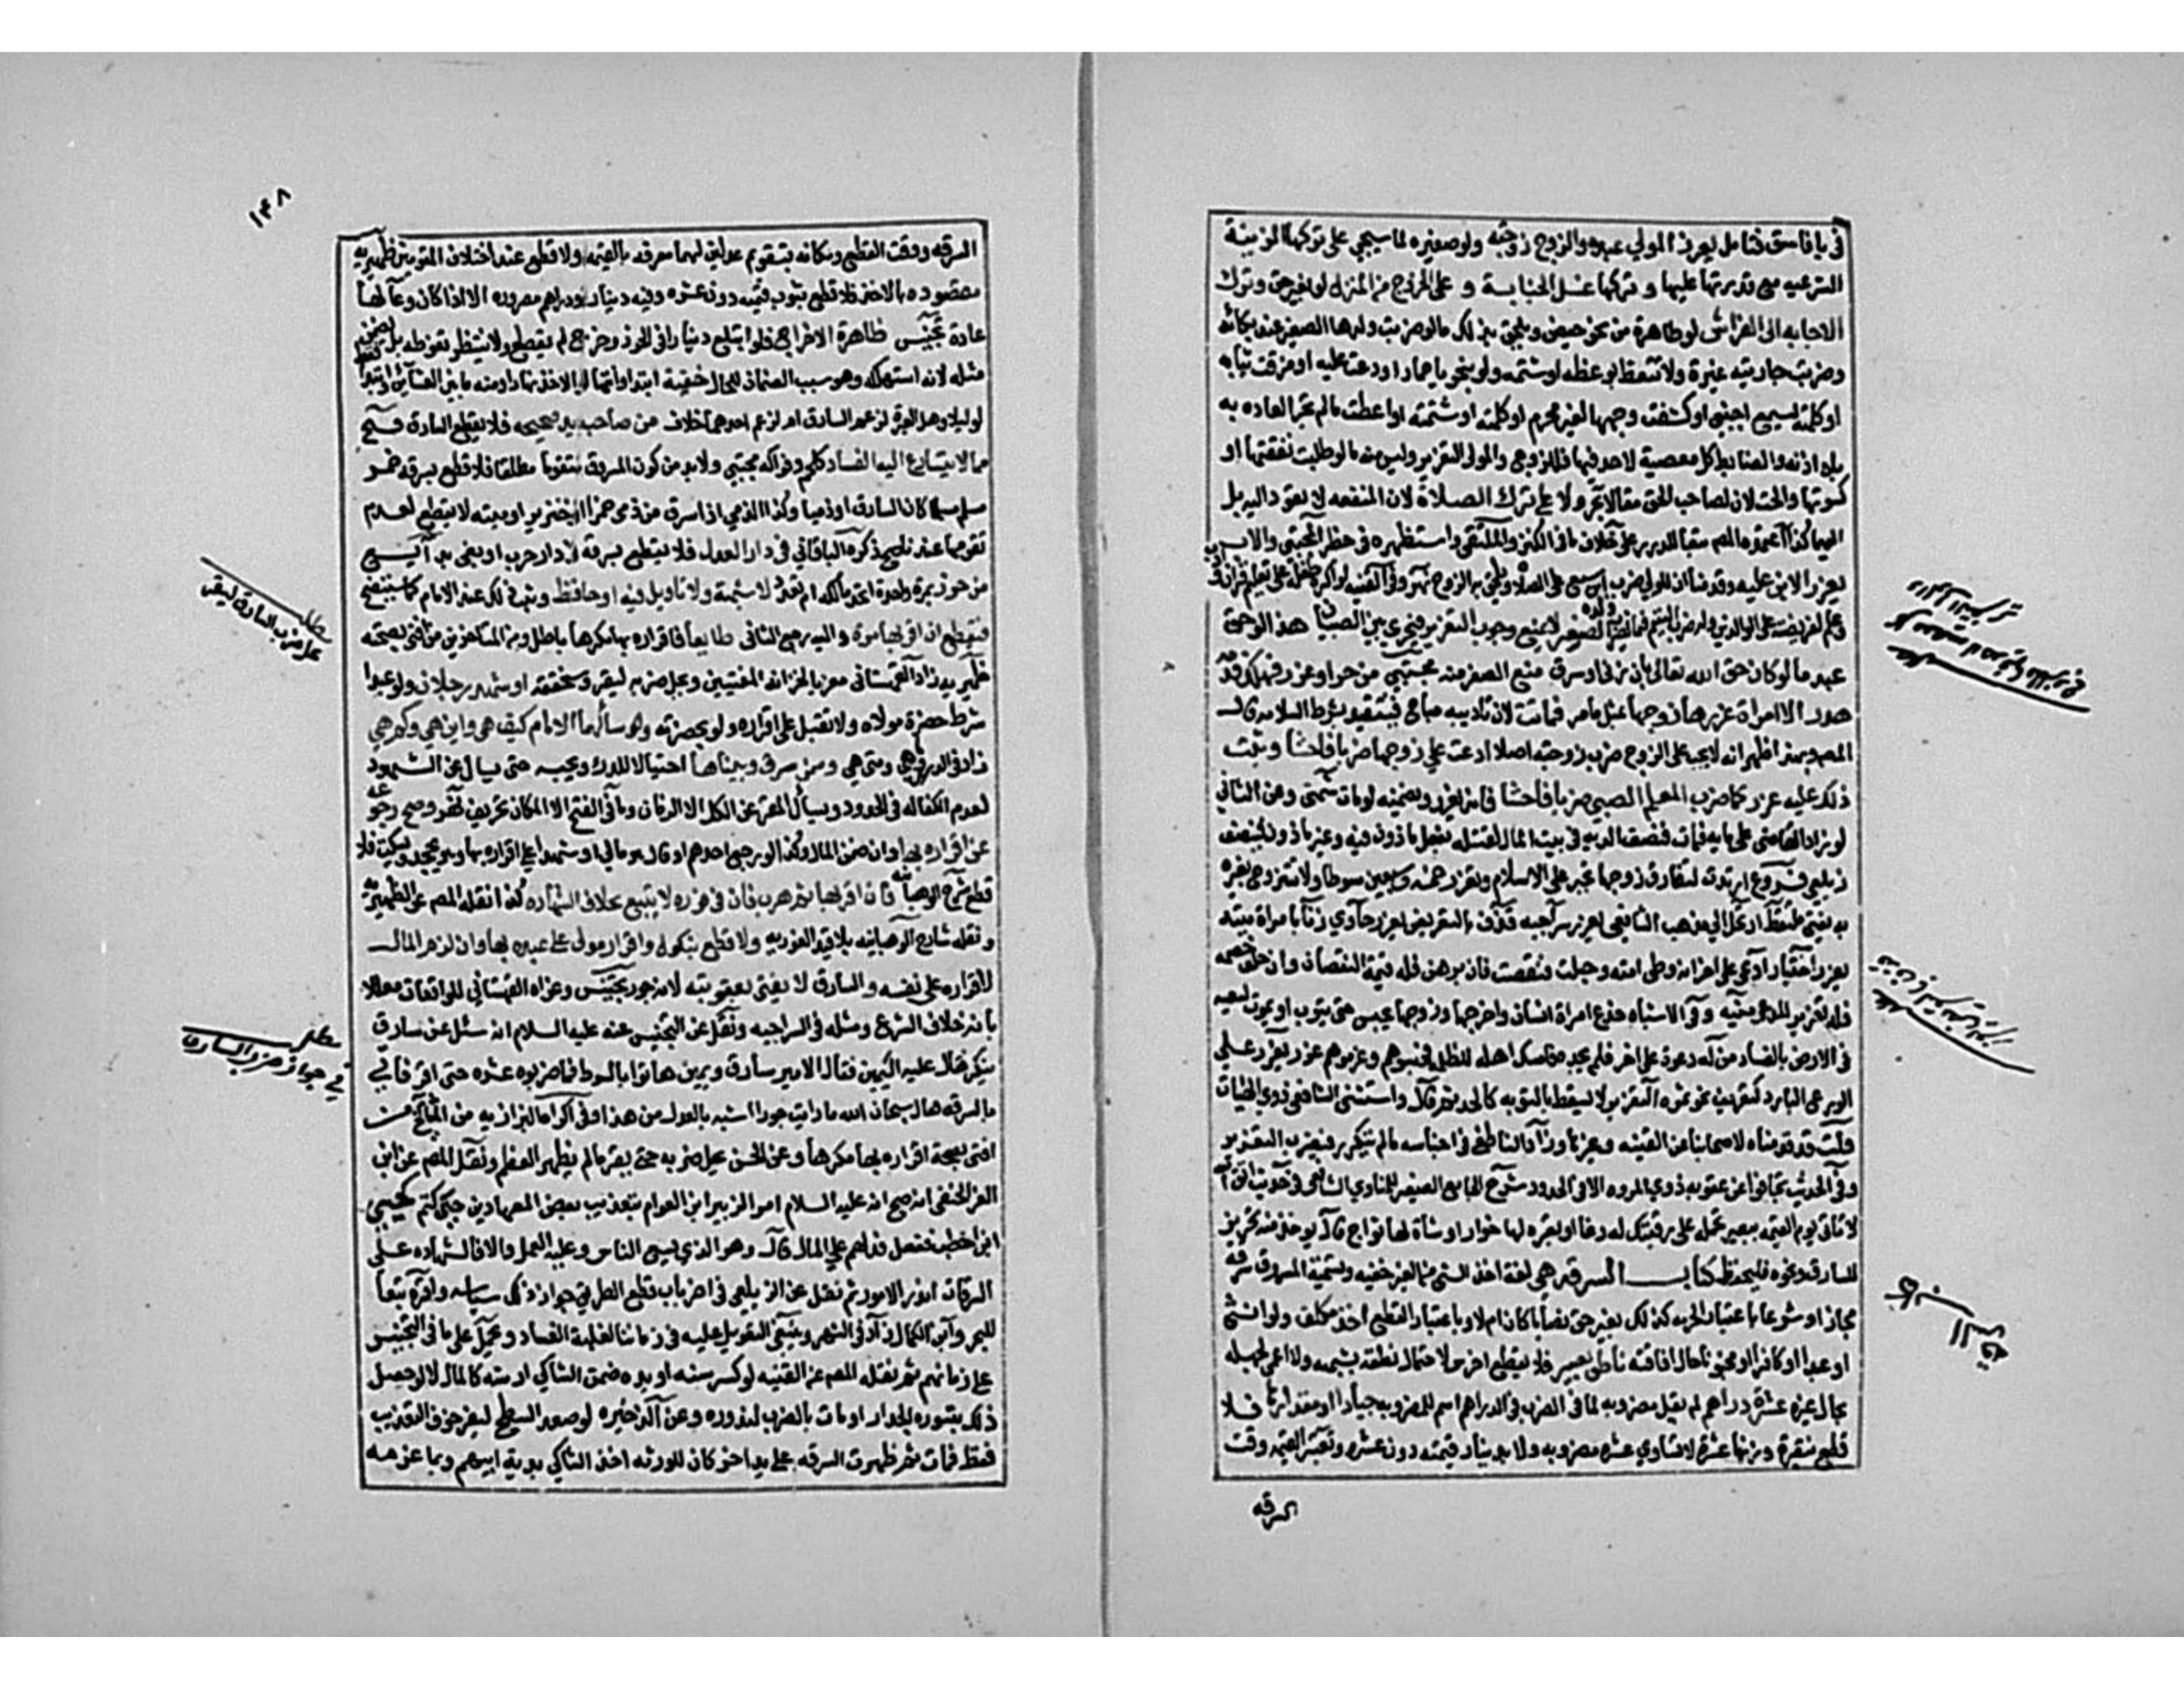 في يا فاسق فتأمل يعزر المولي عبده والزوج زوجته ولو صغيره لما سيجي على تركها الزينة
الشرعيه مع قدرتها عليها و تركها غسل الجنابة و على الخروج من المنزل لو بغير حق وترك
الاجابه الى الفراش لو طاهرة من نحو حيض ويلحق بذلك ما لو ضربت ولدها الصغير عند بكائه
وضربت جاريته غيرة ولا تتعظ بوعظه او شتمته ولو بنحو يا حمار او دعت عليه او مزقت ثيابه
او كلمته ليسمع اجنبي او كشفت وجهها لغير محرم او كلمته او شتمته او اعطت ما لم تجر العاده به
بلا اذنه والضابط كل معصية لا حد فيها فللزوج والمولى التعزير وليس منه ما لو طلبت نفقتها او
كسوتها والحت لان لصاحب الحق مقالا بحر ولا على ترك الصلاة لان المنفعه لا تعود اليه بل
اليها كذا اعتمده المص تبعا للدرر على خلاف ما في الكنز والملتقى واستظهره في حظر المجتبى والاب
يعزر الابن عليه وقدمنا ان للولي ضرب ابن سبع على الصلاة ويلحق به الزوج نهر وفي القنيه له اكراه طفله على تعلم قران
وعلم لفريضته على الوالدين وله ضرب اليتيم فيما يضرب ولده الصغر لا يمنع وجوب التعزير فيجري بين الصبيان هذا لو حق
عبد ما لو كان حق الله تعالى بان زنى او سرق منع الصغر منه مجتبى من حد او عزر فهلك فدمه
هدر الا امراة عزرها زوجها بمثل ما مر فماتت لان تاديبه مباح فيتقيد بشرط السلامه قال
المص وبهذا ظهر انه لا يجب على الزوج ضرب زوجته اصلا ادعت على زوجها ضربا فاحشا وثبت
ذلك عليه عزر كما ضرب المعلم الصبي ضربا فاحشا فانه يعزر ويضمنه لو مات شمني وعن الثاني
لو زاد القاضي على مايه فمات فنصف الديه في بيت المال لقتله بفعل ماذون فيه وغير ماذون فينتصف
زيلعي فروع ارتدت لتفارق زوجها تجبر على الاسلام وتعزر خمسه وسبعين سوطا ولا تتزوج بغيره
به يفتى ملتقط ارتحل الى مذهب الشافعي يعزر سراجيه قذف بالتعريض يعزر حاوي زنا بامراة ميته
يعزر اختيار ادعى على اخر انه وطى امته وحبلت فنقصت فان برهن فله قيمة النقصان وان حلف خصمه
فله تعزير المدعي منيه وفي الاشباه خدع امراة انسان واخرجها وزوجها يحبس حتى يتوب او يموت لسعيه
في الارض بالفساد من له دعوى على اخر فلم يجده فامسك اهله للظلمه فحبسوهم وغرموهم عزر يعزر على
الورع البارد كتعريف نحو تمره التعزير لا يسقط بالتوبه كالحد ثم قال واستثنى الشافعي ذوي الهيئات
قلت قد قدمناه لاصحابنا عن القنيه وغيرها وزاد الناطفي في اجناسه ما لم يتكرر فيضرب التعزير
وفي الحديث تجافوا عن عقوبه ذوي المروه الا في الحدود شرح الجامع الصغير للمناوي الشافعي في حديث اتق الله
لا تاتي يوم القيمه ببعير تحمله على رقبتك له رغا او بقره لها خوار او شاة لها ثواج قال يوخذ منه تجريس
للسارق ونحوه فليحفظ كتاب السرقه هي لغة اخذ الشي من الغير خفيه وتسمية المسروق سرقه
مجازا وشرعا باعتبار الحرمه كذلك بغير حق نصابا كان ام لا وباعتبار القطع اخذ مكلف ولو انثى
او عبدا او كافرا او مجنونا حال افاقته ناطق بصير فلا يقطع اخرس لاحتمال نطقه بشبهه ولا اعمى لجهله
بمال غيره عشرة دراهم لم يقل مضروبه لما في المغرب الدراهم اسم للمضروبه جيادا او مقدارها فلا
قطع بنقرة وزنها عشرة لا تساوي عشره مضروبه ولا بدينار قيمته دون عشره وتعتبر القيمه وقت
السرقه
كتاب السرقه
١٤٨
السرقه ووقت القطع ومكانه بتقويم عدلين لهما معرفه بالقيمه ولا قطع عند اختلاف المقومين ظهيريه
مقصوده بالاخذ فلا قطع بثوب قيمته دون عشره وفيه دينار او دراهم مصروره الا اذا كان وعا لها
عادة تجنيس ظاهرة الاخراج فلو ابتلع دينارا في الحرز وخرج لم يقطع ولا ينتظر تغوطه بل يضمن
مثله لانه استهلكه وهو سبب الضمان للحال خفية ابتدا وانتها لو الاخذ نهارا ومنه ما بين العشائين وابتدا
لو ليلا وهل العبرة لزعم السارق ام لزعم احدهما خلاف من صاحب يد صحيحه فلا يقطع السارق
مما لا يتسارع اليه الفساد كلحم وفواكه مجتبى ولا بد من كون المسروق متقوما مطلقا فلا قطع بسرقه خمر
مسلم مسلما كان السارق او ذميا وكذا الذمي اذا سرق من ذمي خمرا او خنزيرا او ميته لا يقطع لعدم
تقومها عندنا ذكره الباقاني في دار العدل فلا يقطع بسرقه في دار حرب او بغي بدائع
من حرز بمرة واحدة اتحد مالكه ام تعدد لا شبهة ولا تاويل فيه او حافظ وثبت ذلك عند الامام كما سيتضح
فيقطع ان اقر بها مرة واليه رجع الثاني طايعا فاقراره بها مكرها باطل ومن المتاخرين من افتى بصحته
ظهيريه زاد القهستاني معزيا لخزانه المفتيين ويحل ضربه ليقر وسنحققه او شهد رجلان ولو عبدا
شرط حضرة مولاه ولا تقبل على اقراره ولو بحضرته وسالهما الامام كيف هي واين هي وكم هي
زاد في الدرر وما هي ومتى هي وممن سرق وبيناها احتيالا للدرء ويحبسه حتى يسال عن الشهود
لعدم الكفاله في الحدود ويسال المقر عن الكل الا الزمان وما في الفتح الا المكان تحريف نهر وصح رجوعه
عن اقراره بها وان ضمن المال وكذا لو رجع احدهم او قال هو مالي او شهدا على اقراره بها وهو يجحد او يسكت فلا
قطع شرح الوهبانيه فان اقر بها ثم هرب فان في فوره لا يتبع بخلاف الشهاده كذا نقله المص عن الظهيريه
ونقله شارح الوهبانيه بلا قيد الفوريه ولا قطع بنكول واقرار مولى على عبده بها وان لزم المال
لاقراره على نفسه والسارق لا يفتى بعقوبته لانه جور تجنيس وعزاه القهستاني للواقعات معللا
بانه خلاف الشرع ومثله في السراجيه ونقل عن التجنيس عنه عليه السلام انه سئل عن سارق
ينكر فقال عليه اليمين فقال الامير سارق ويمين هاتوا بالسوط فما ضربوه عشره حتى اقر فاتي
بالسرقه فقال سبحان الله ما رايت جورا اشبه بالعدل من هذا وفي اكراه البزازيه من المشايخ من
افتى بصحة اقراره بها مكرها وعن الحسن يحل ضربه حتى يقر ما لم يظهر العظم ونقل المص عن ابن
العز الحنفي انه صح انه عليه السلام امر الزبير ابن العوام بتعذيب بعض المعاهدين حين كتم كنز حيي
ابن اخطب ففعل فدلهم على المال قال وهو الذي يسع الناس وعليه العمل والا فالشهاده على
السرقات اندر الامور ثم نقل عن الزيلعي في اخر باب قطع الطريق جواز ذلك سياسه واقره تبعا
للبحر وابن الكمال زاد في النهر وينبغي التعويل عليه في زماننا لغلبة الفساد ويحمل ما في التجنيس
على زمانهم ثم نقل المص عن القنيه لو كسر سنه او يده ضمن الشاكي ارشه كالمال لا لو حصل
ذلك بتسوره الجدار او مات بالضرب لندوره وعن الذخيره لو صعد السطح ليفر خوف التعذيب
فسقط فمات ثم ظهرت السرقه على يد اخر كان للورثه اخذ الشاكي بدية ابيهم وبما غرمه
مطلب
على ضرب السارق ليقر
مطلب
في جواز ضرب السارق